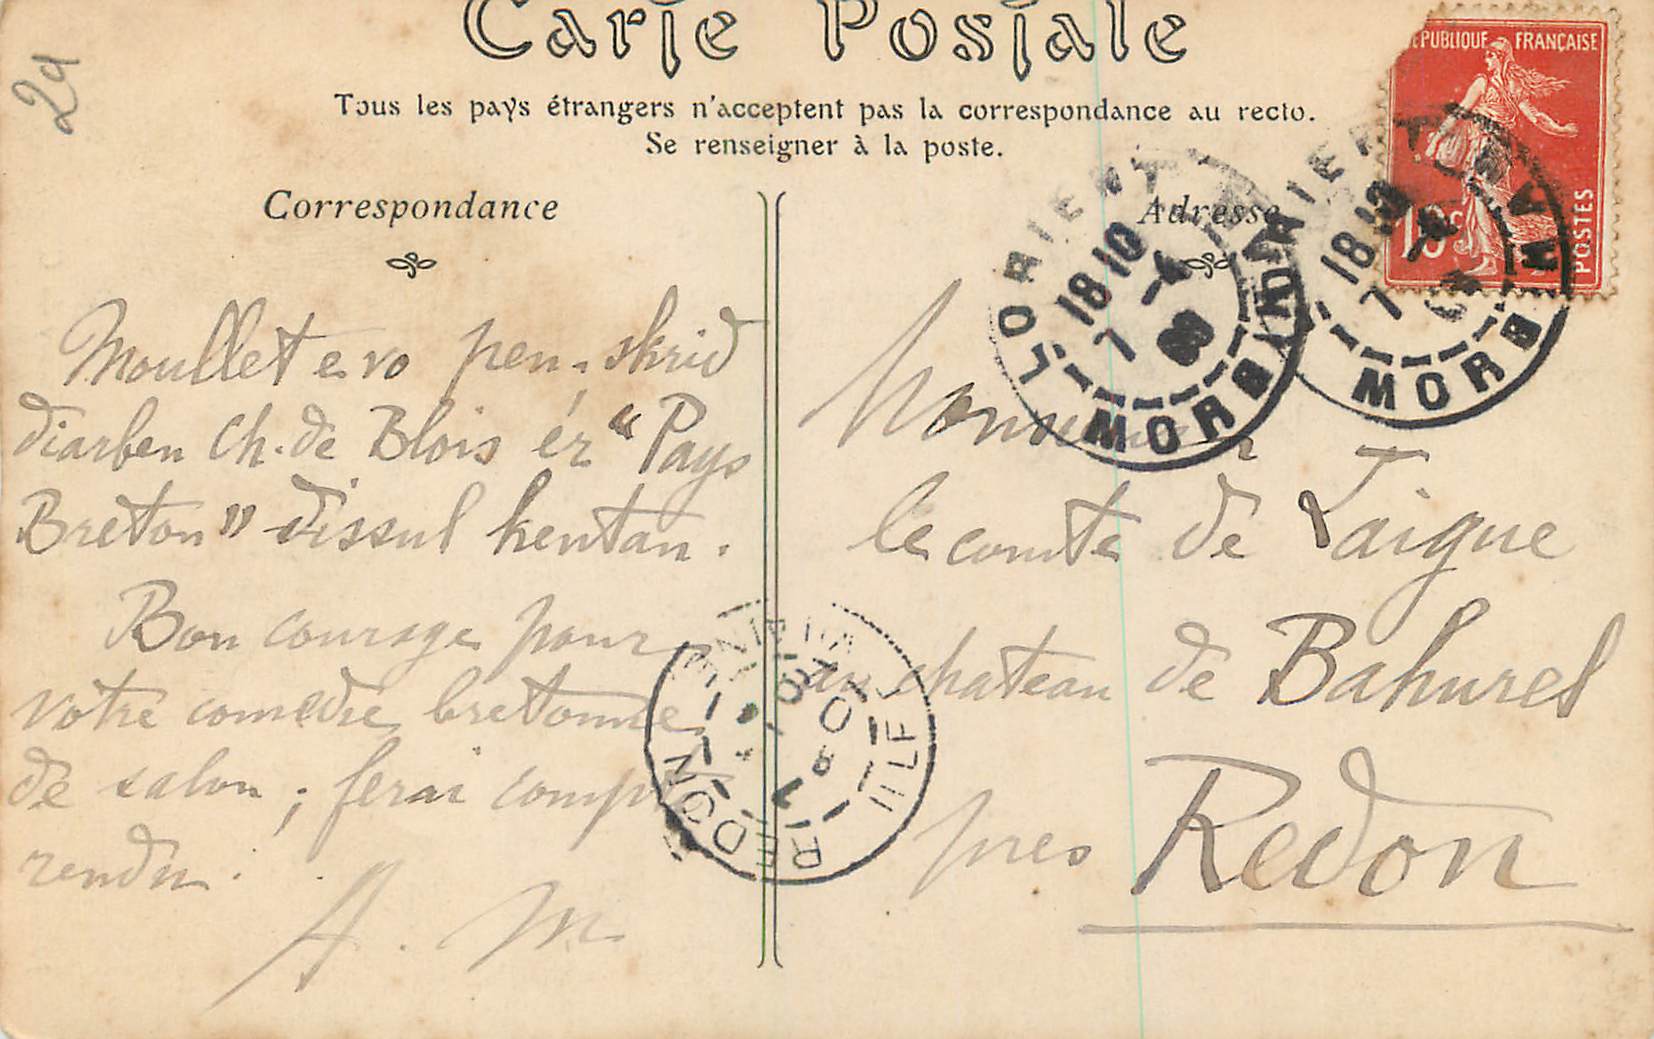 Carte Postale
Tous les pays étrangers n'acceptent pas la correspondance au recto.
Se renseigner à la poste.
29
Correspondance
Moullet e vo pen-skrid
diarben Ch. de Blois ér "Pays
Breton" dissul kentan.
Bon courage pour
votre comédie bretonne
de salon ; ferai compte
rendu.
A. M
Adresse
Monsieur
le comte de Laigue
au chateau de Bahurel
près Redon
RÉPUBLIQUE FRANÇAISE
10c
POSTES
LORIENT
18 10
7 -4
09
MORBIHAN
LORIENT
18 10
7 -4
MORBIHAN
REDON
ILLE
VILAINE